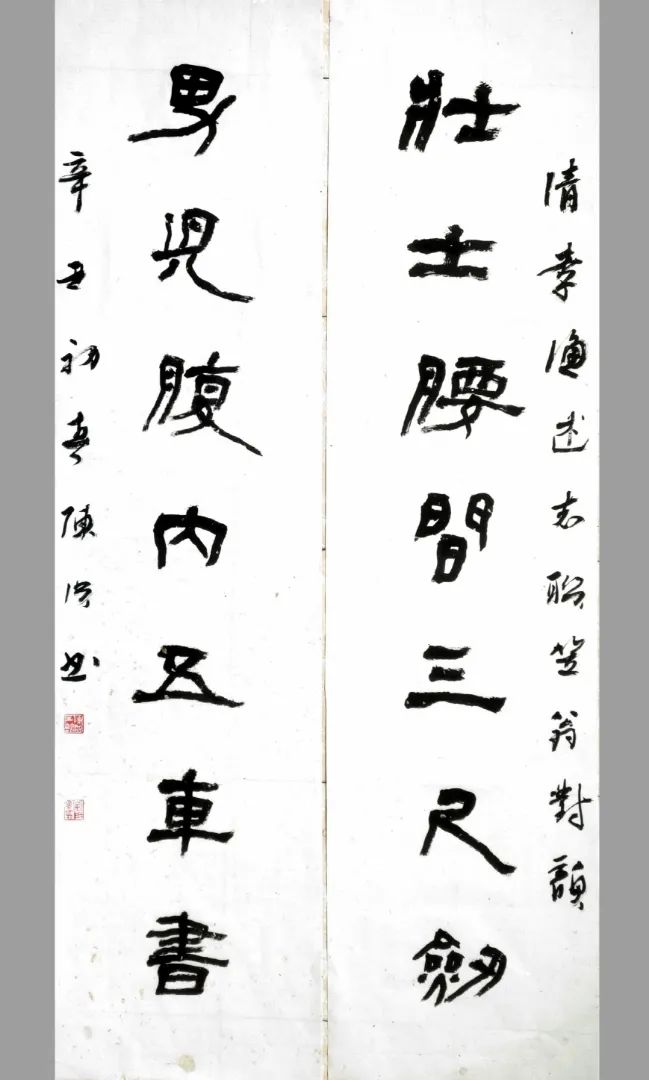 清李漁述志聯笠翁對韻
壯士腰間三尺劒
男兒腹內五車書
辛丑初春陳書